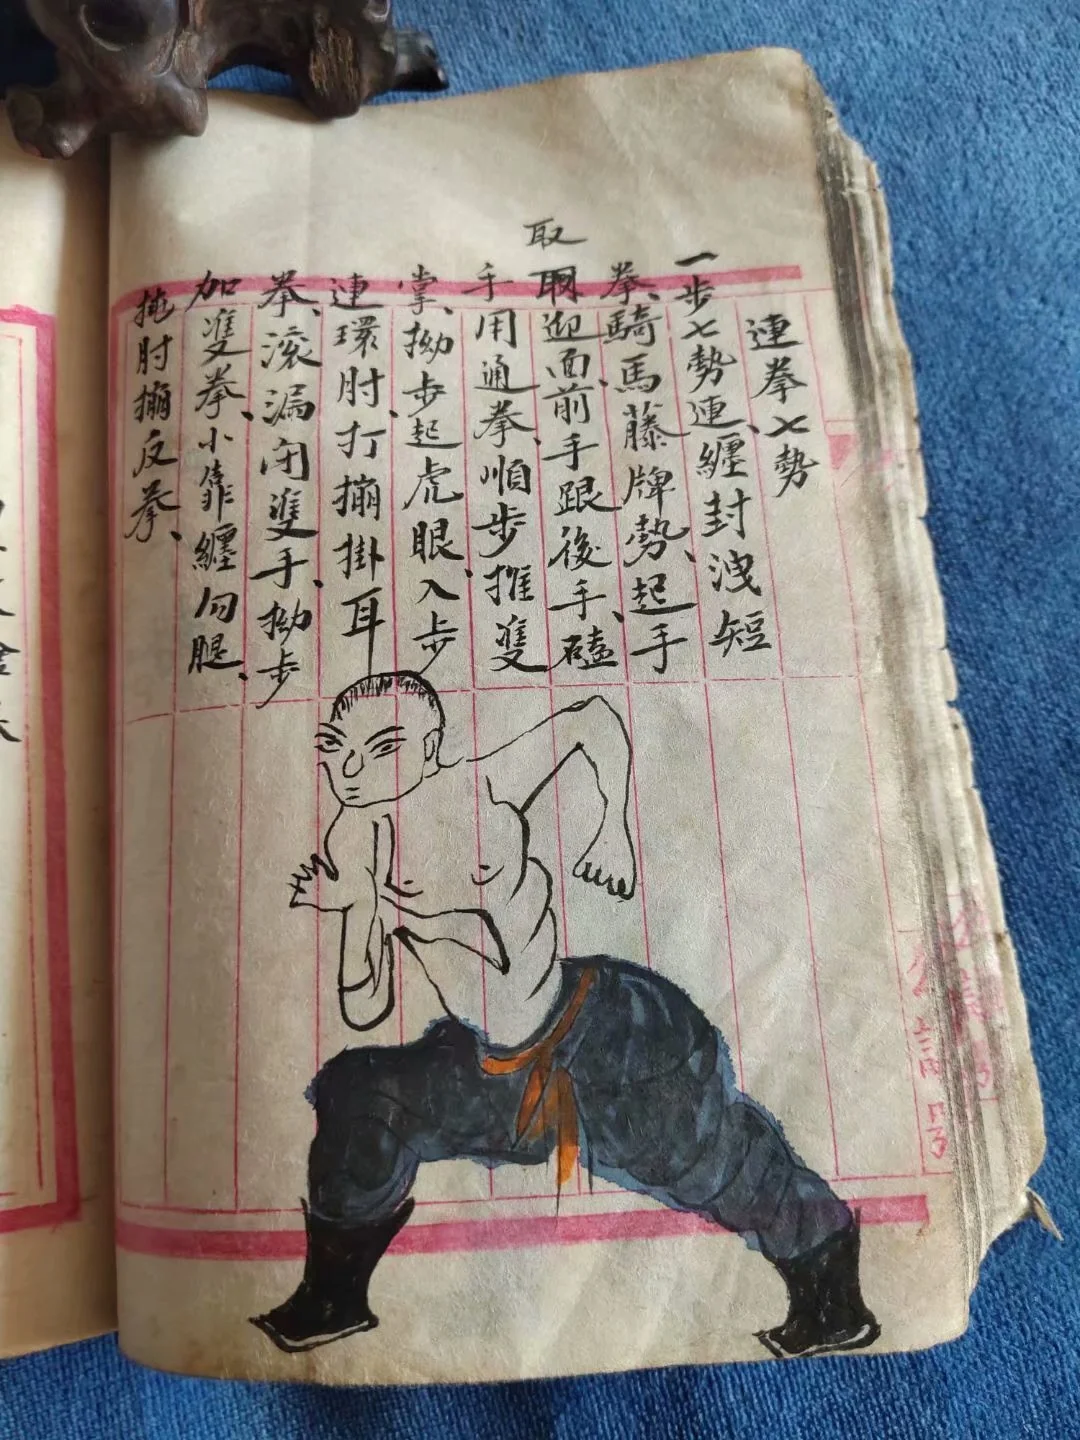 連拳七勢
一步七勢連、纏封洩短
拳、騎馬藤牌勢、起手
取
迎面、前手跟後手、磕
手用通拳、順步推雙
掌、拗步起虎眼、入步
連環肘、打搠掛耳
拳、滚漏闭雙手、拗步
加雙拳、小靠纏勾腿、
肘搠反拳、